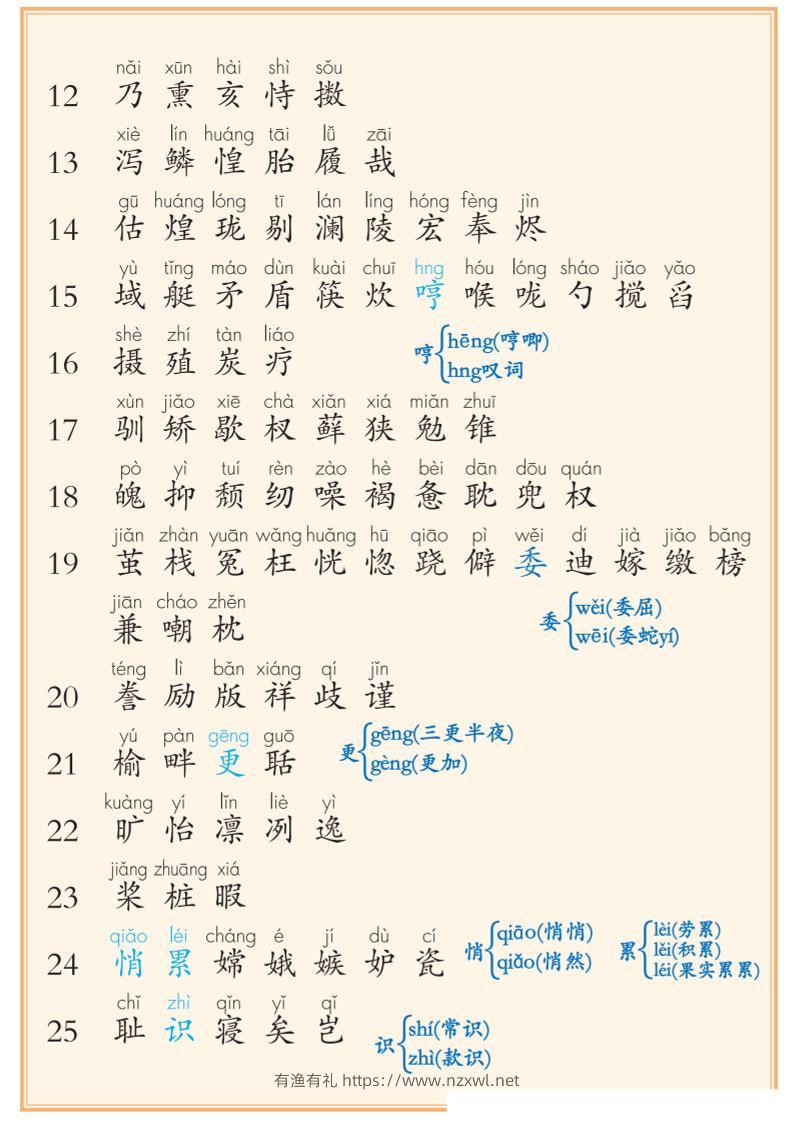 nǎi xūn hài shì sǒu
12 乃 熏 亥 恃 擞
xiè lín huáng tāi lǚ zāi
13 泻 鳞 惶 胎 履 哉
gū huáng lóng tī lán líng hóng fèng jìn
14 估 煌 珑 剔 澜 陵 宏 奉 烬
yù tǐng máo dùn kuài chuī hng hóu lóng sháo jiǎo yǎo
15 域 艇 矛 盾 筷 炊 哼 喉 咙 勺 搅 舀
shè zhí tàn liáo
16 摄 殖 炭 疗
哼 hēng(哼唧)
hng叹词
xùn jiǎo xiē chà xiǎn xiá miǎn zhuī
17 驯 矫 歇 杈 藓 狭 勉 锥
pò yì tuí rèn zào hè bèi dān dōu quán
18 魄 抑 颓 纫 噪 褐 惫 耽 兜 权
jiǎn zhàn yuān wǎng huǎng hū qiāo pì wěi dí jià jiǎo bǎng
19 茧 栈 冤 枉 恍 惚 跷 僻 委 迪 嫁 缴 榜
jiān cháo zhěn
兼 嘲 枕
委 wěi(委屈)
wēi(委蛇yí)
téng lì bǎn xiáng qí jǐn
20 誊 励 版 祥 歧 谨
yú pàn gēng guō
21 榆 畔 更 聒
更 gēng(三更半夜)
gèng(更加)
kuàng yí lǐn liè yì
22 旷 怡 凛 冽 逸
jiǎng zhuāng xiá
23 桨 桩 暇
qiǎo léi cháng é jí dù cí
24 悄 累 嫦 娥 嫉 妒 瓷
悄 qiāo(悄悄)
qiǎo(悄然)
累 lèi(劳累)
lěi(积累)
léi(果实累累)
chǐ zhì qǐn yǐ qǐ
25 耻 识 寝 矣 岂
识 shí(常识)
zhì(款识)
有渔有礼 https://www.nzxwl.net